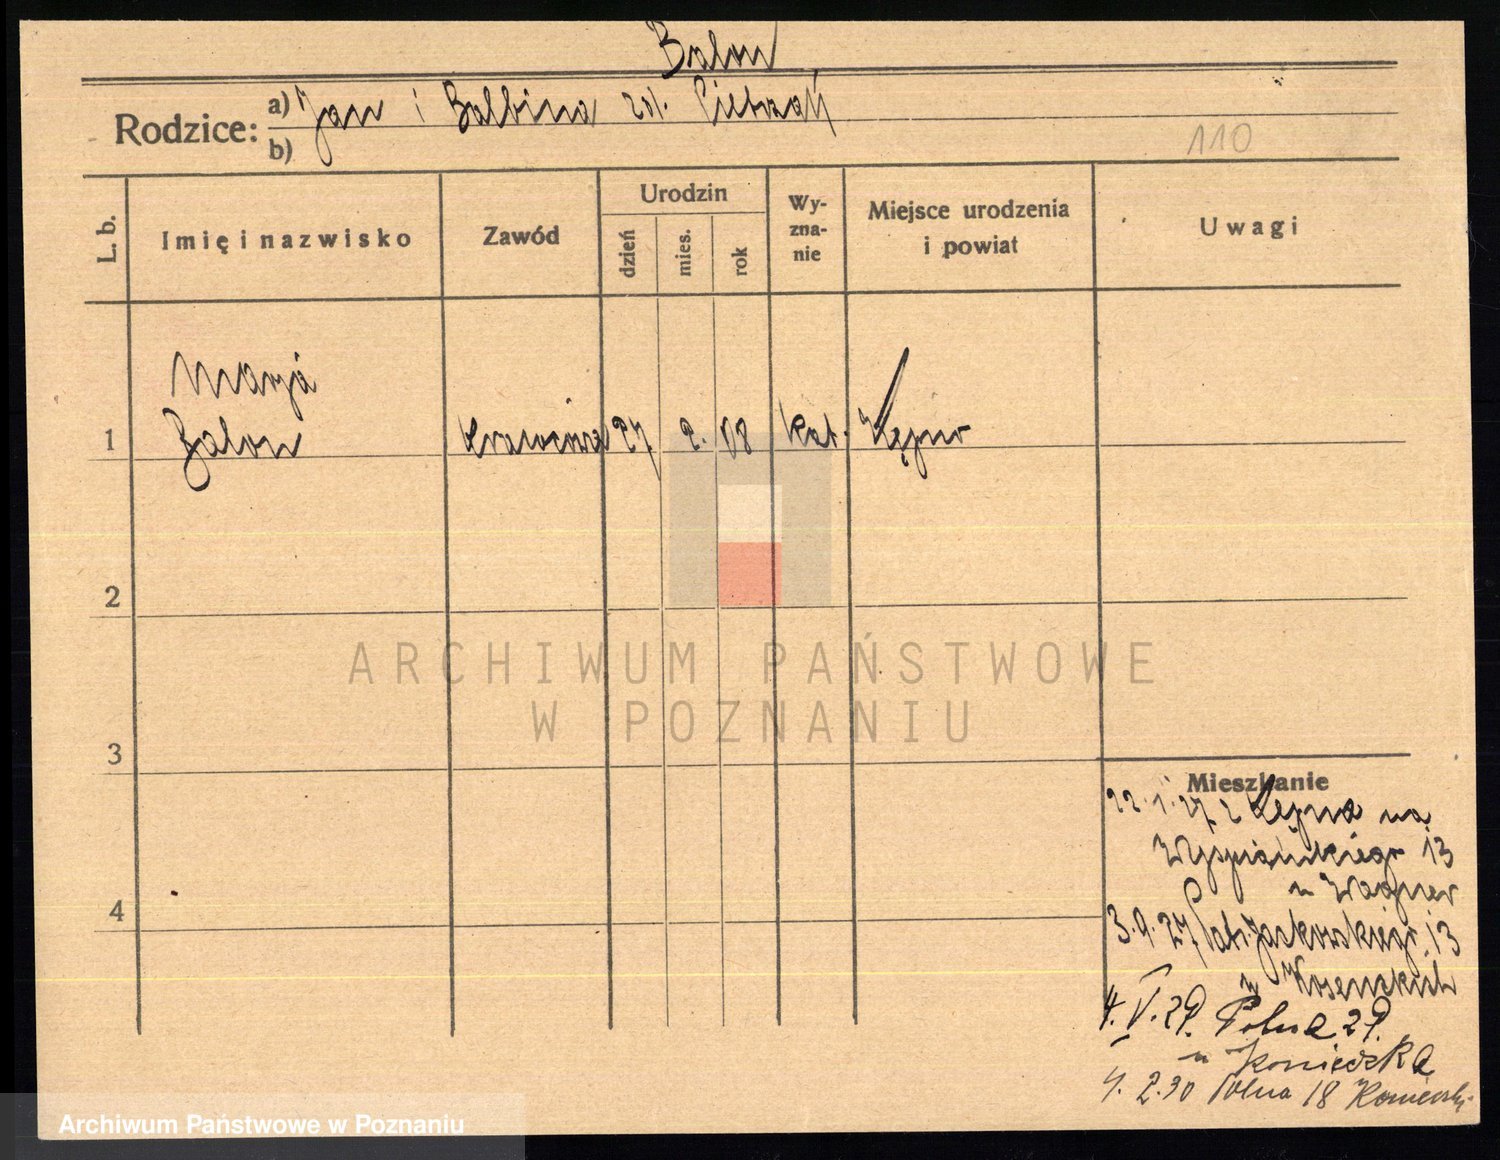 Balon
Rodzice: a) Jan i Balbina zd. Pietrzak
b)
110
L. b.
Imię i nazwisko
Zawód
Urodzin
dzień
mies.
rok
Wy-
zna-
nie
Miejsce urodzenia
i powiat
Uwagi
Marja
1 Balon krawcowa 27 2. 08 kat. Kępno
2
ARCHIWUM PAŃSTWOWE
W POZNANIU
3
Mieszkanie
22.1.27 z Kępna na
Wyspiańskiego 13
u Wagner
3.9.27 Patr. Jackowskiego 13
u
4.V.29. Polna 29.
u Koniecka
4.2.30 Polna 18
4
Archiwum Państwowe w Poznaniu